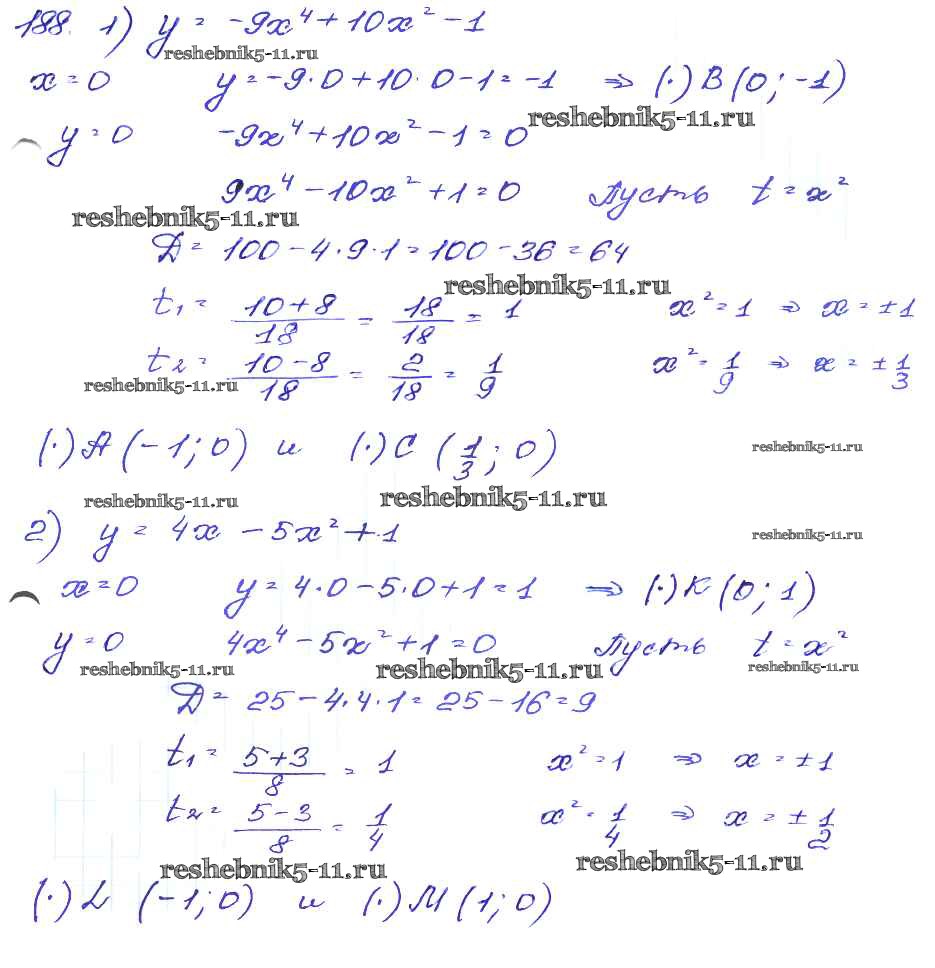 188. 1) y = -9x⁴ + 10x² - 1
reshebnik5-11.ru
x = 0 y = -9·0 + 10·0 - 1 = -1 ⇒ (·) B (0; -1)
reshebnik5-11.ru
y = 0 -9x⁴ + 10x² - 1 = 0
9x⁴ - 10x² + 1 = 0 Пусть t = x²
reshebnik5-11.ru
Д = 100 - 4·9·1 = 100 - 36 = 64
reshebnik5-11.ru
t₁ = (10 + 8)/18 = 18/18 = 1 x² = 1 ⇒ x = ±1
t₂ = (10 - 8)/18 = 2/18 = 1/9 x² = 1/9 ⇒ x = ± 1/3
reshebnik5-11.ru
(·) A (-1; 0) и (·) C (1/3; 0)
reshebnik5-11.ru
reshebnik5-11.ru reshebnik5-11.ru
2) y = 4x - 5x² + 1
reshebnik5-11.ru
x = 0 y = 4·0 - 5·0 + 1 = 1 ⇒ (·) K (0; 1)
y = 0 4x⁴ - 5x² + 1 = 0 Пусть t = x²
reshebnik5-11.ru reshebnik5-11.ru reshebnik5-11.ru
Д = 25 - 4·4·1 = 25 - 16 = 9
t₁ = (5 + 3)/8 = 1 x² = 1 ⇒ x = ±1
t₂ = (5 - 3)/8 = 1/4 x² = 1/4 ⇒ x = ± 1/2
reshebnik5-11.ru reshebnik5-11.ru
(·) L (-1; 0) и (·) M (1; 0)